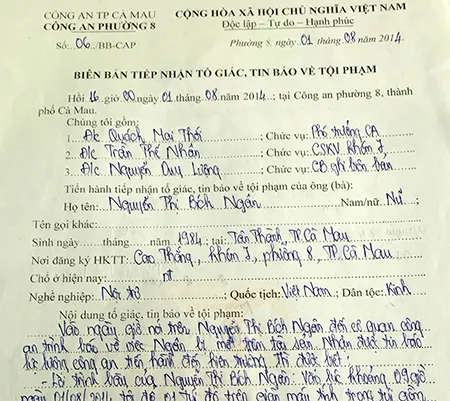 CÔNG AN TP CÀ MAU
CÔNG AN PHƯỜNG 8
Số: 06 /BB-CAP
CỘNG HÒA XÃ HỘI CHỦ NGHĨA VIỆT NAM
Độc lập – Tự do – Hạnh phúc
Phường 8, ngày 01 tháng 08 năm 2014
BIÊN BẢN TIẾP NHẬN TỐ GIÁC, TIN BÁO VỀ TỘI PHẠM
Hồi 16 giờ 00 ngày 01 tháng 08 năm 2014; tại Công an phường 8, thành
phố Cà Mau.
Chúng tôi gồm:
1. Đ/c Quách Mai Thới ; Chức vụ: Phó trưởng CA
2. Đ/c Trần Thế Nhân ; Chức vụ: CSKV khóm
3. Đ/c Nguyễn Duy Lượng ; Chức vụ: CB ghi biên bản
Tiến hành tiếp nhận tố giác, tin báo về tội phạm của ông (bà):
Họ tên: Nguyễn Thị Bích Ngân Nam/nữ: Nữ
Tên gọi khác:
Sinh ngày tháng năm 1984; tại: Tân Thành, TP. Cà Mau
Nơi đăng ký HKTT: Cao Thắng, khóm , phường 8, TP. Cà Mau
Chỗ ở hiện nay: nt
Nghề nghiệp: Nội trợ ; Quốc tịch: Việt Nam ; Dân tộc: Kinh
Nội dung tố giác, tin báo về tội phạm:
Vào ngày giờ nói trên Nguyễn Thị Bích Ngân đến cơ quan công
an trình báo về việc Ngân bị mất trộm tài sản. Nhận được tin báo
lực lượng công an tiến hành đến hiện trường thì được biết:
- Lời trình bày của Nguyễn Thị Bích Ngân: Vào lúc khoảng 09 giờ
ngày 01/08/2014